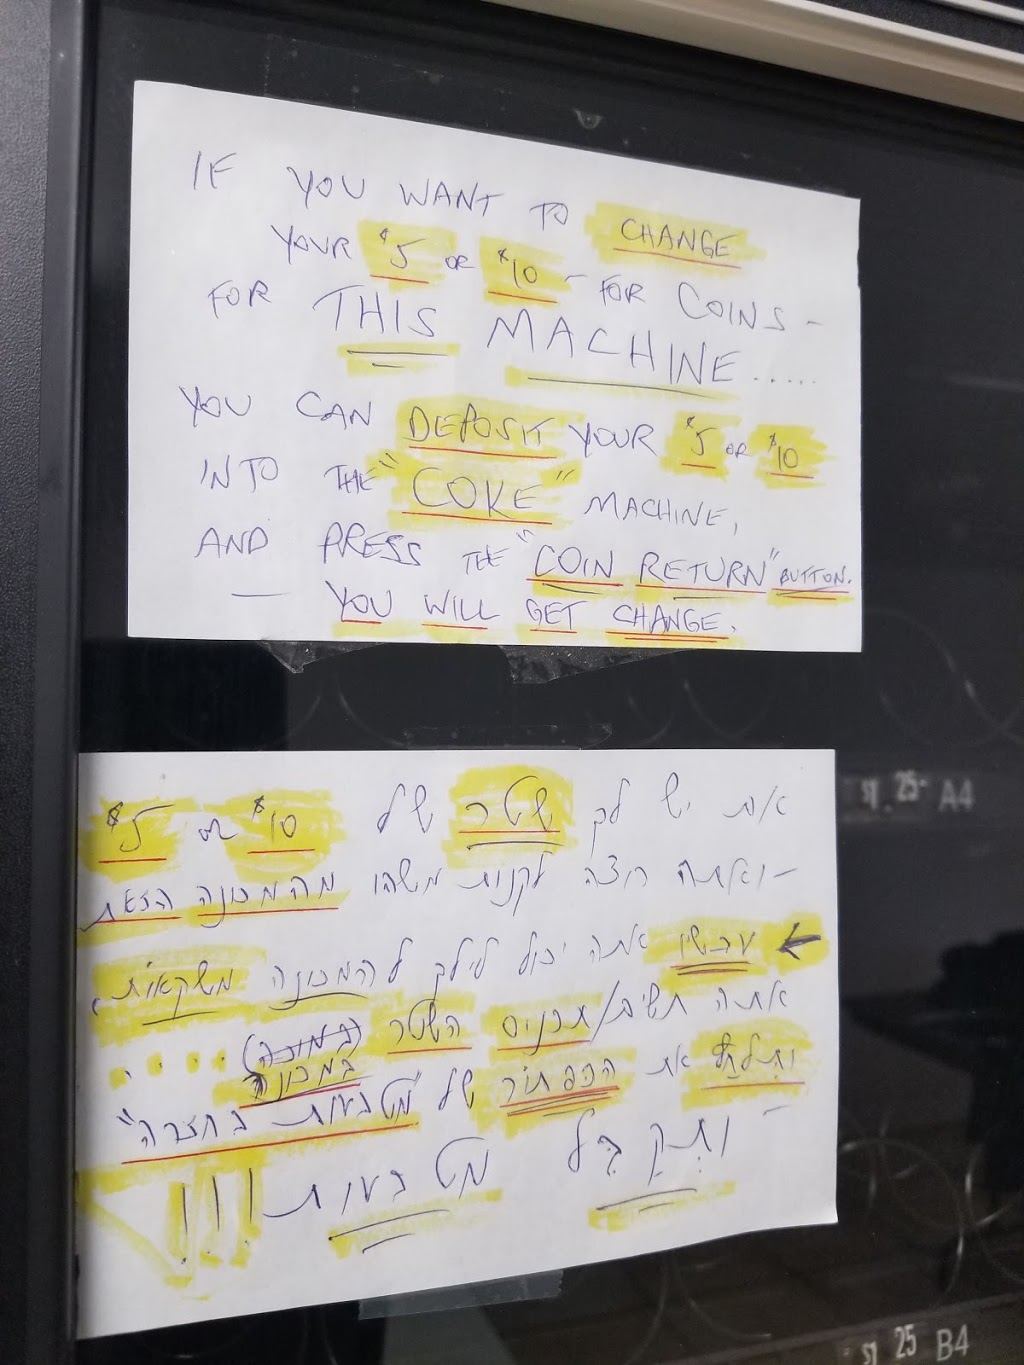 IF YOU WANT TO CHANGE
YOUR $5 OR $10 - FOR COINS -
FOR THIS MACHINE.....
YOU CAN DEPOSIT YOUR $5 OR $10
INTO THE "COKE" MACHINE,
AND PRESS THE "COIN RETURN" BUTTON.
— YOU WILL GET CHANGE.
אם יש לך שטר של $5 or $10
- ואתה רוצה לקנות משהו מהמכונה הזאת
← עכשיו אתה יכול לילך להמכונה משקאות,
אתה תשיב/תכניס השטר (במוכה)
במכונה
ותלחץ את הכפתור של "מטבעות בחזרה"
ותקבל מטבעות!!!
$1.25 A4
$1 25 B4